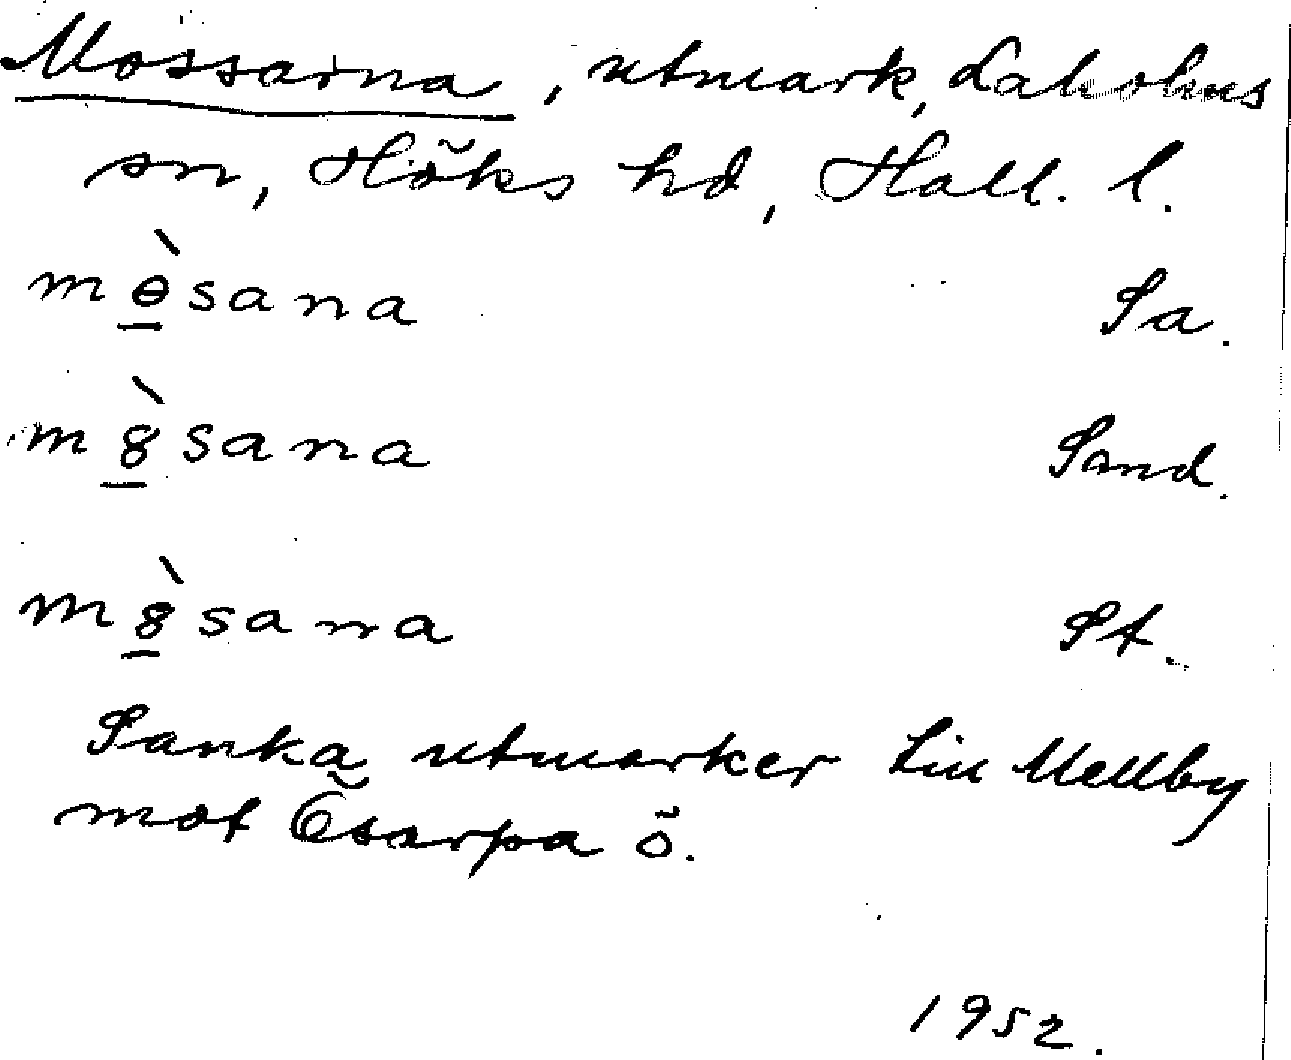 Mossarna, utmark, Laholms
sn, Höks hd, Hall. l.
mɵ̀sana Sa.
m8̀sana Sand.
m8̀sana St.
Sanka utmarker till Mellby
mot Ösarpa ö.
1952.